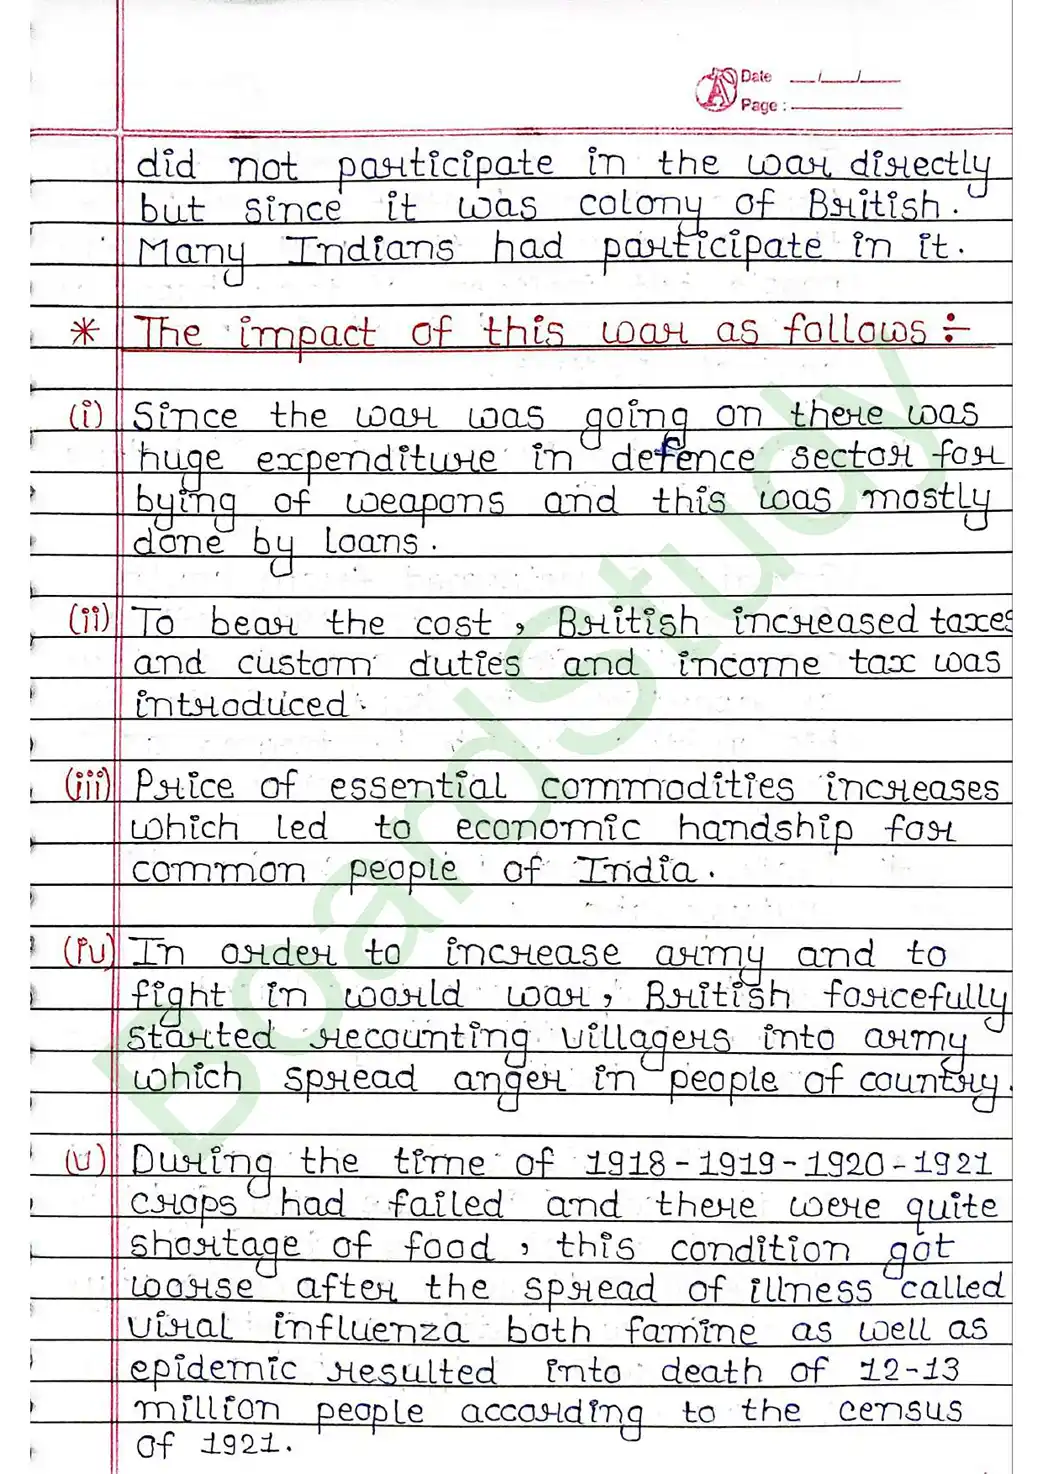 Date __/__/__
Page : ______
did not participate in the war directly
but since it was colony of British.
Many Indians had participate in it.
* The impact of this war as follows ÷
(i) Since the war was going on there was
huge expenditure in defence sector for
bying of weapons and this was mostly
done by loans.
(ii) To bear the cost, British increased taxes
and custom duties and income tax was
introduced.
(iii) Price of essential commodities increases
which led to economic handship for
common people of India.
(iv) In order to increase army and to
fight in world war, British forcefully
started recounting villagers into army
which spread anger in people of country.
(v) During the time of 1918-1919-1920-1921
crops had failed and there were quite
shortage of food, this condition got
worse after the spread of illness called
viral influenza both famine as well as
epidemic resulted into death of 12-13
million people according to the census
of 1921.
BoardStudy